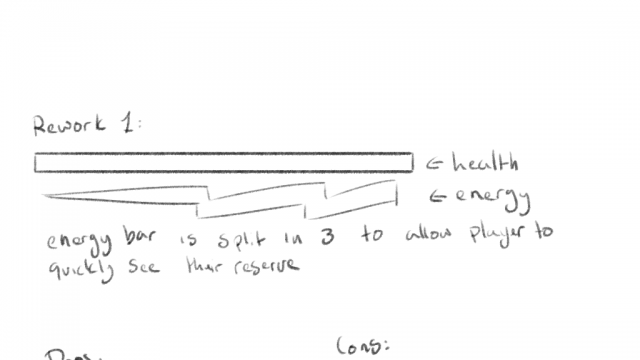 Rework 1:
← health
← energy
energy bar is split in 3 to allow player to
quickly see their reserve
Cons: